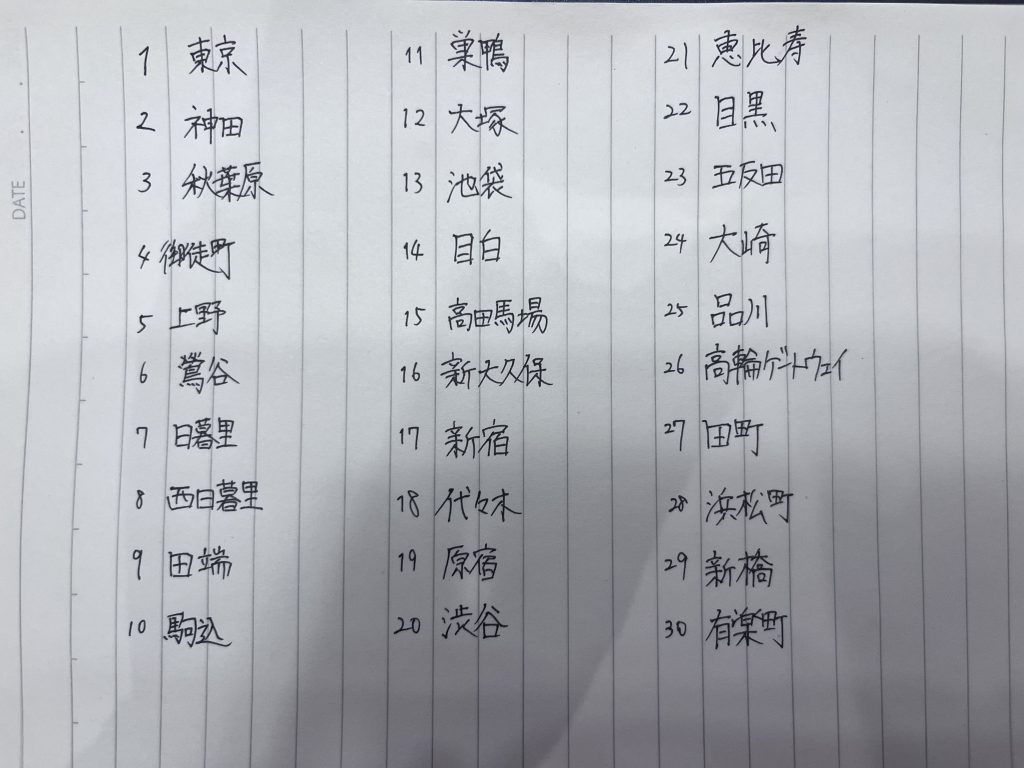 DATE
1 東京
2 神田
3 秋葉原
4 御徒町
5 上野
6 鶯谷
7 日暮里
8 西日暮里
9 田端
10 駒込
11 巣鴨
12 大塚
13 池袋
14 目白
15 高田馬場
16 新大久保
17 新宿
18 代々木
19 原宿
20 渋谷
21 恵比寿
22 目黒
23 五反田
24 大崎
25 品川
26 高輪ゲートウェイ
27 田町
28 浜松町
29 新橋
30 有楽町